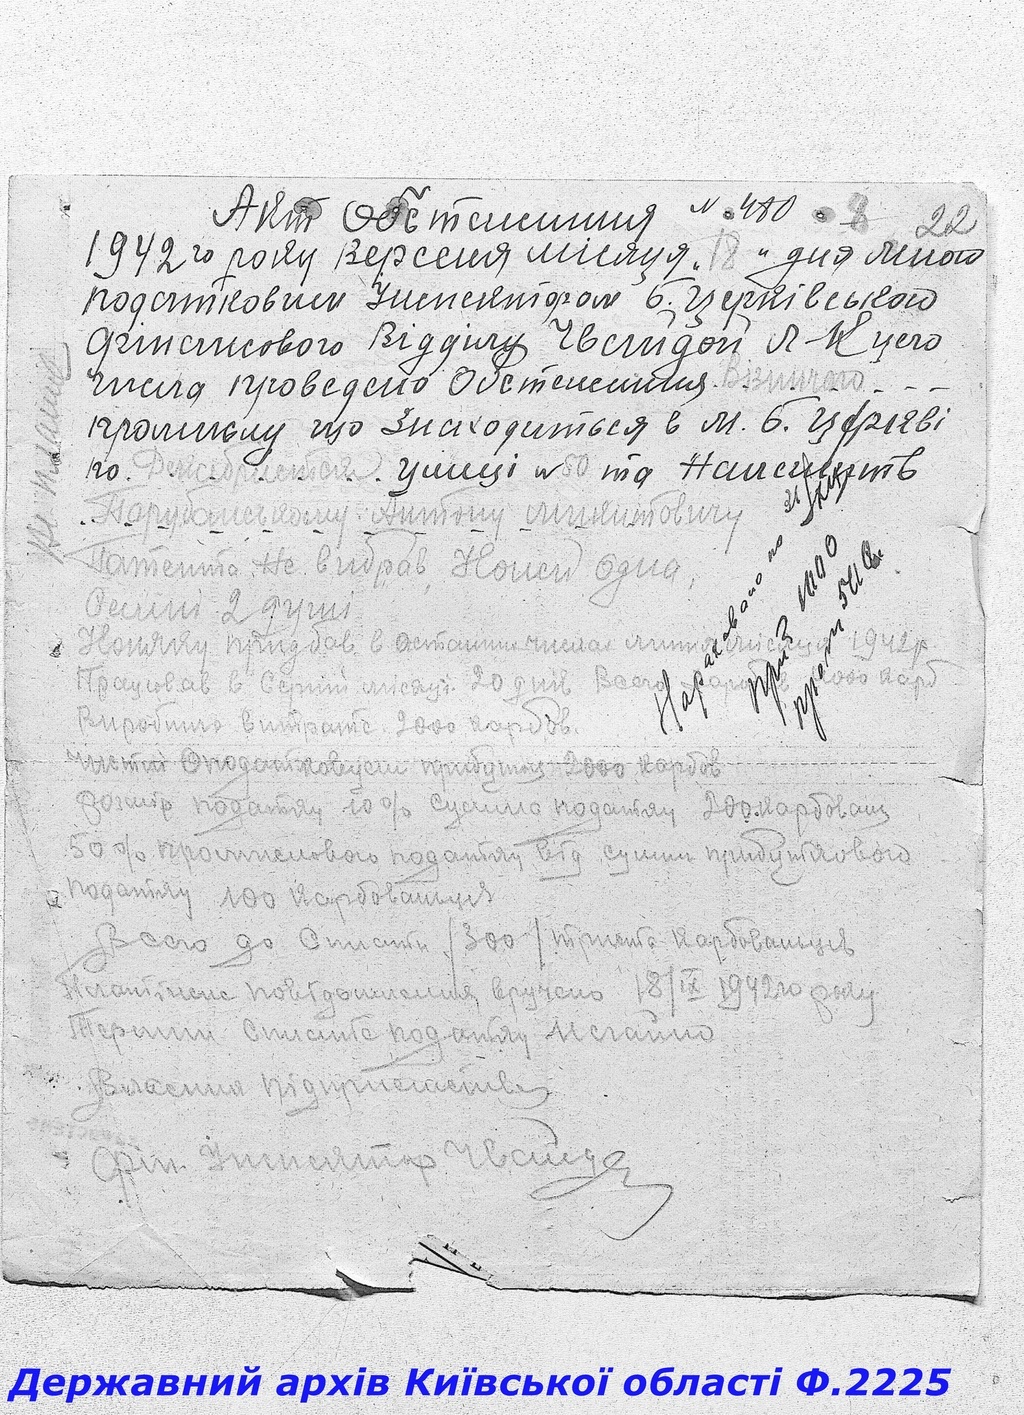 Акт Обстеження № 480 8 22
1942 го року Вересня місяця „18" дня мною
податковим Інспектором Б. Церківського
Фінансового Відділу Чвандой Л К цего
числа проведено Обстеження Візничого
промислу що Знаходиться в м. Б. Церкві
по Декабристів улиці № 50 та Належить
Парубанському Антону Микитовичу
Патента Не вибрав, Коней Одна,
Семьї 2 душі
Коняку придбав в останих числах липня місяця 1942 р
Працював в Серпні місяці 20 днів Всего 4000 карб
Виробничі витрати 2000 карбов.
Чистий Оподатковуєм прибуток 2000 карбов
Розмір податку 10% Сумма податку 200 карбованц
50% промислового податку від сумми прибуткового
податку 100 карбованців
Всего до Сплати /300/ триста карбованців
Платіжне повідомлення вручено 18/IX 1942 го року
Термін Сплати податку Негайно
Власник підприємства
Фін. Інспектор Чванда
Нараховано по
приб 200
пром 100
Державний архів Київської області Ф.2225